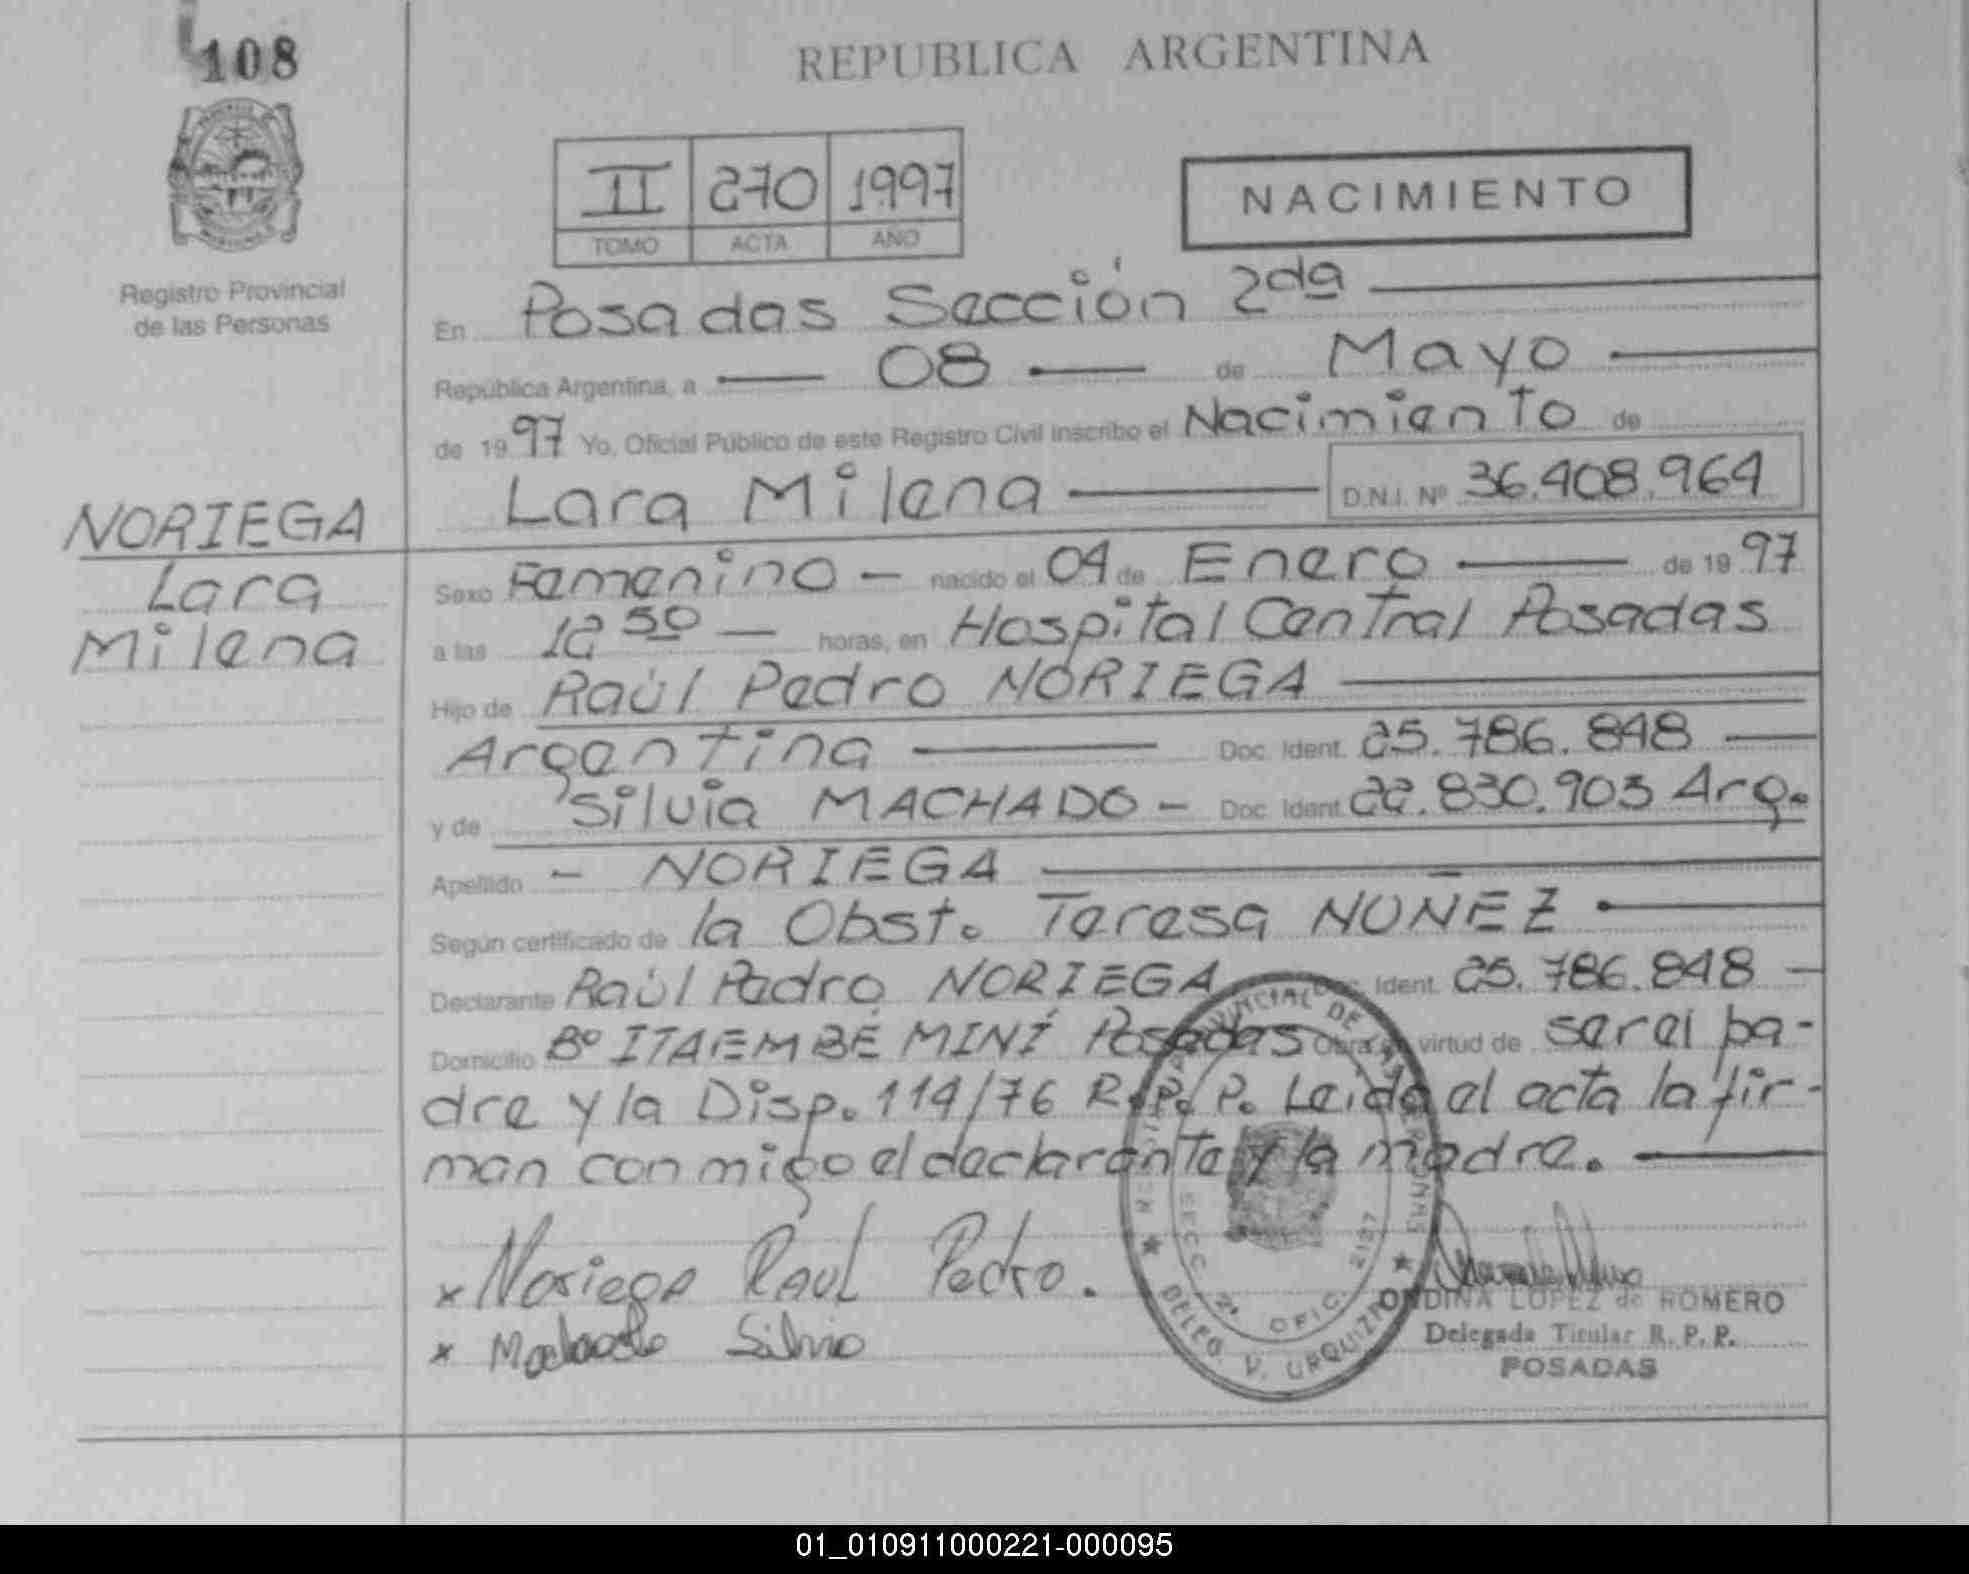 108
REPUBLICA ARGENTINA
II 270 1997
TOMO ACTA AÑO
NACIMIENTO
Registro Provincial
de las Personas
En Posadas Sección 2da
República Argentina, a 08 de Mayo
de 1997 Yo, Oficial Público de este Registro Civil inscribo el Nacimiento de
Lara Milena D.N.I. Nº 36.408.964
NORIEGA
Lara
Milena
Sexo Femenino - nacido el 04 de Enero de 1997
a las 12 50 horas, en Hospital Central Posadas
Hijo de Raúl Pedro NORIEGA
Argentina Doc. Ident. 25.786.848
y de Silvia MACHADO - Doc. Ident. 22.830.903 Arg.
Apellido - NORIEGA
Según certificado de la Obst. Teresa NUÑEZ
Declarante Raúl Pedro NORIEGA Doc. Ident. 25.786.848
Domicilio Bº ITAEMBÉ MINÍ Posadas Obra en virtud de ser el pa-
dre y la Disp. 114/76 R.P.P. Leida el acta la fir-
man conmigo el declarante y la madre.
x Noriega RAUL Pedro.
x Machado Silvia
ONDINA LOPEZ de ROMERO
Delegada Titular R.P.P.
POSADAS
SECC. 2ª OFIC. 2127
DELEG. V. URQUIZA
01_010911000221-000095